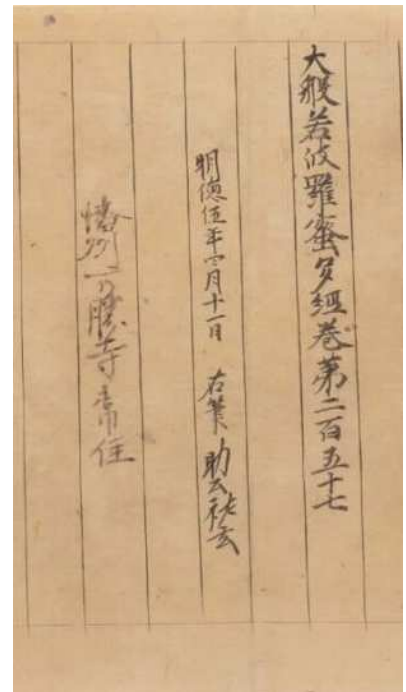 大般若波羅蜜多経巻第二百五十七
明徳伍年六月十一日 右筆 助公祐玄
播州一乃勝寺常住